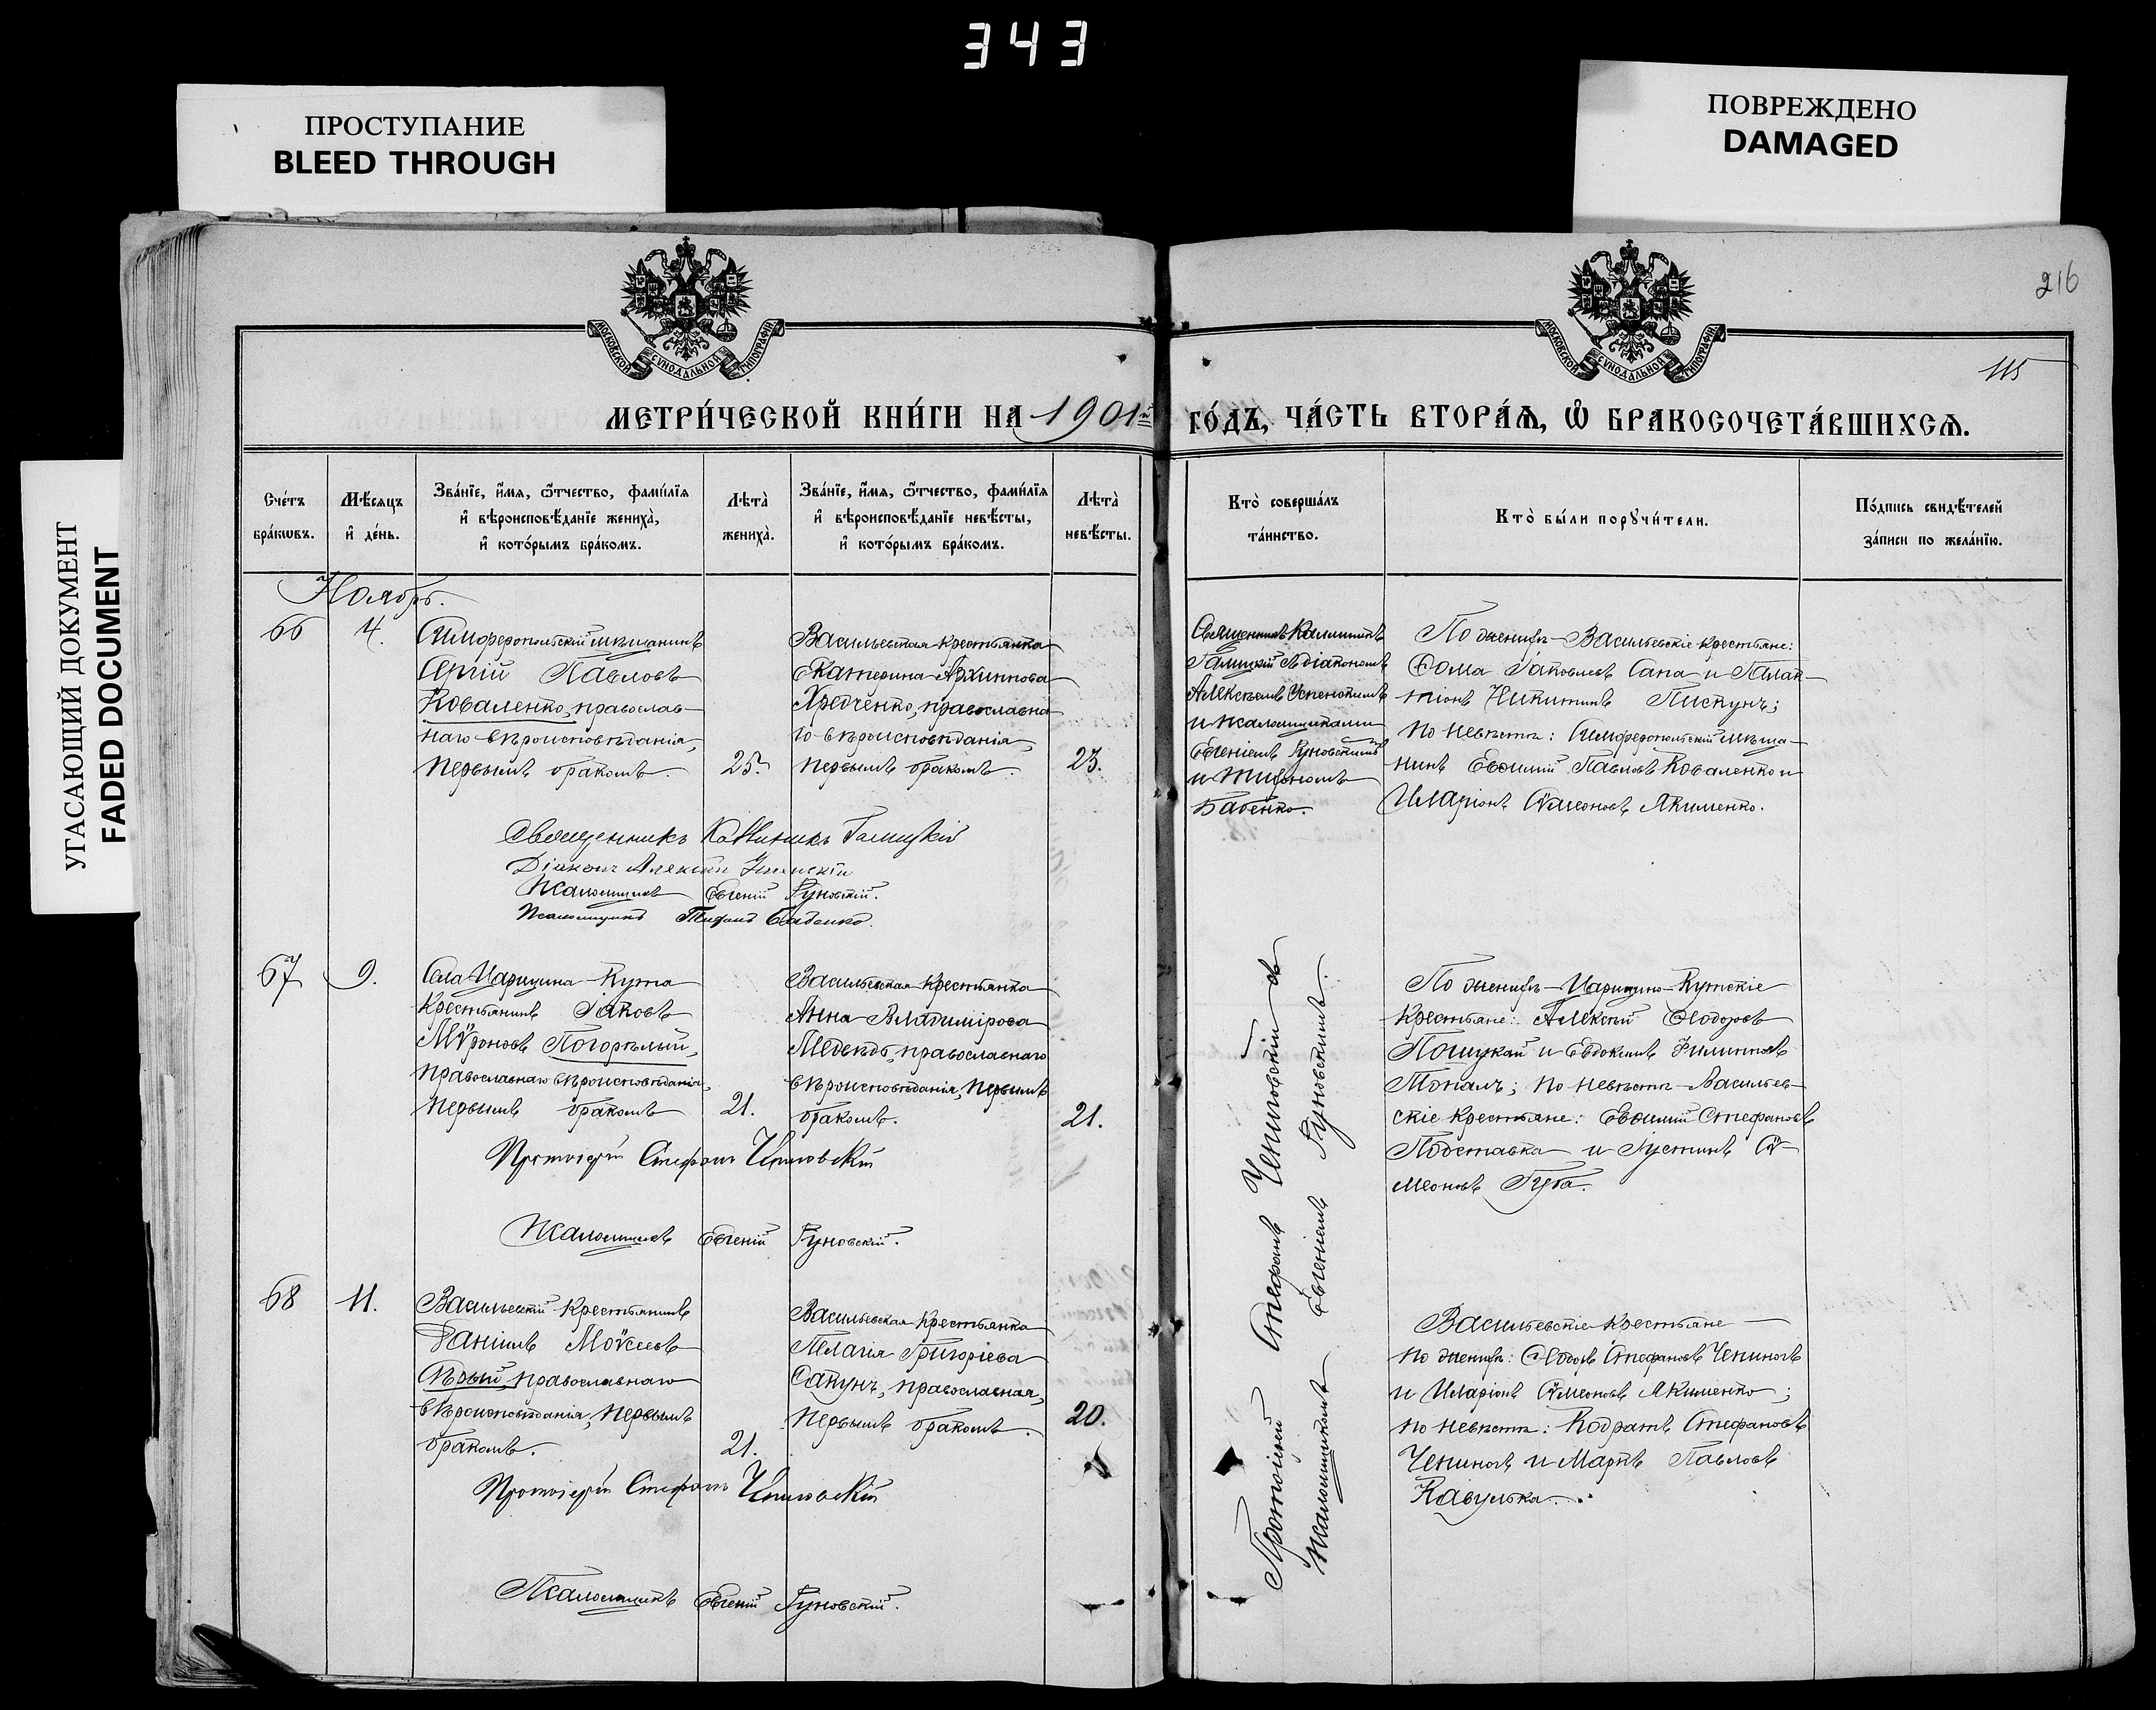 343
ПРОСТУПАНИЕ
BLEED THROUGH
ПОВРЕЖДЕНО
DAMAGED
УГАСАЮЩИЙ ДОКУМЕНТ
FADED DOCUMENT
216
115
МОСКОВСКОЙ СѴНОДАЛЬНОЙ ТИПОГРАФІИ
МОСКОВСКОЙ СѴНОДАЛЬНОЙ ТИПОГРАФІИ
МЕТРИ́ЧЕСКОЙ КНИ́ГИ НА 1901й ГО́ДЪ, ЧА́СТЬ ВТОРА́Ѧ, Ѽ БРАКОСОЧЕТА́ВШИХСѦ.
Сче́тъ
бра́кѡвъ.
Мѣ́сяцъ
и҆ де́нь.
Зва́нїе, и҆́мѧ, ѻ҆́тчество, фами́лїѧ
и҆ вѣроисповѣ́данїе жениха̀,
и҆ кото́рымъ бра́комъ.
Лѣта̀
жениха̀.
Зва́нїе, и҆́мѧ, ѻ҆́тчество, фами́лїѧ
и҆ вѣроисповѣ́данїе невѣ́сты,
и҆ кото́рымъ бра́комъ.
Лѣта̀
невѣ́сты.
Кто̀ соверша́лъ
та́инство.
Кто̀ бы́ли порꙋчи́тели.
По́дпись свидѣ́телей
за́писи по жела́нїю.
Ноябрь.
66
4.
Симферопольскій мѣщанинъ
Сергій Павловъ
Коваленко, православ-
наго вѣроисповѣданія,
первымъ бракомъ.
25.
Васильевская крестьянка
Екатерина Архипова
Хредченко, православна-
го вѣроисповѣданія,
первымъ бракомъ.
23.
Священникъ Каллиникъ
Галицкій съ діакономъ
Алексѣемъ Успенскимъ
и псаломщиками
Евгеніемъ Руновскимъ
и Тифономъ
Бабенко.
По женихѣ – Васильевскіе крестьяне:
Ѳома Іаковлевъ Сапа и Плак-
тіонъ Никитинъ Пискунъ;
по невѣстѣ: Симферопольскій мѣща-
нинъ Евѳимій Павловъ Коваленко и
Иларіонъ Сѵмеоновъ Якименко.
Священникъ Каллиникъ Галицкій
Діаконъ Алексѣй Успенскій
Псаломщикъ Евгеній Руновскій.
Псаломщикъ Тифонъ Бабенко.
67
9.
Села Царицына-Кута
крестьянинъ Іаковъ
Мѵроновъ Погорѣлый,
православнаго вѣроисповѣданія,
первымъ бракомъ
21.
Васильевская крестьянка
Анна Владимірова
Медвѣдь, православнаго
вѣроисповѣданія, первымъ
бракомъ.
21.
По женихѣ – Царицыно-Кутскіе
крестьяне: Алексѣй Ѳеодоровъ
и Евдокимъ Филипповъ
Топалъ; по невѣстѣ – Васильев-
скіе крестьяне: Евѳимій Стефановъ
Подставка и Іустинъ Сѵ-
меоновъ Губа.
Протоіерей Стефанъ Чепиговскій
Псаломщикъ Евгеній Руновскій.
Протоіерей Стефанъ Чепиговскій съ
псаломщикомъ Евгеніемъ Руновскимъ.
68
11.
Васильевскій крестьянинъ
Даніилъ Моѵсеевъ
православнаго
вѣроисповѣданія, первымъ
бракомъ.
21.
Васильевская крестьянка
Пелагія Григоріева
Сапунъ, православная,
первымъ бракомъ.
20.
Васильевскіе крестьяне
по женихѣ: Ѳеодоръ Стефановъ Чепиногъ
и Иларіонъ Сѵмеоновъ Якименко;
по невѣстѣ: Кодратъ Стефановъ
Чепиногъ и Маркъ Павловъ
Кавулька.
Протоіерей Стефанъ Чепиговскій
Псаломщикъ Евгеній Руновскій.